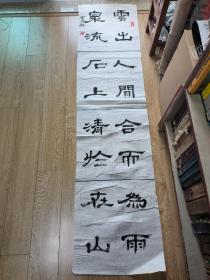 雲出人間合而為雨
泉流石上清於在山